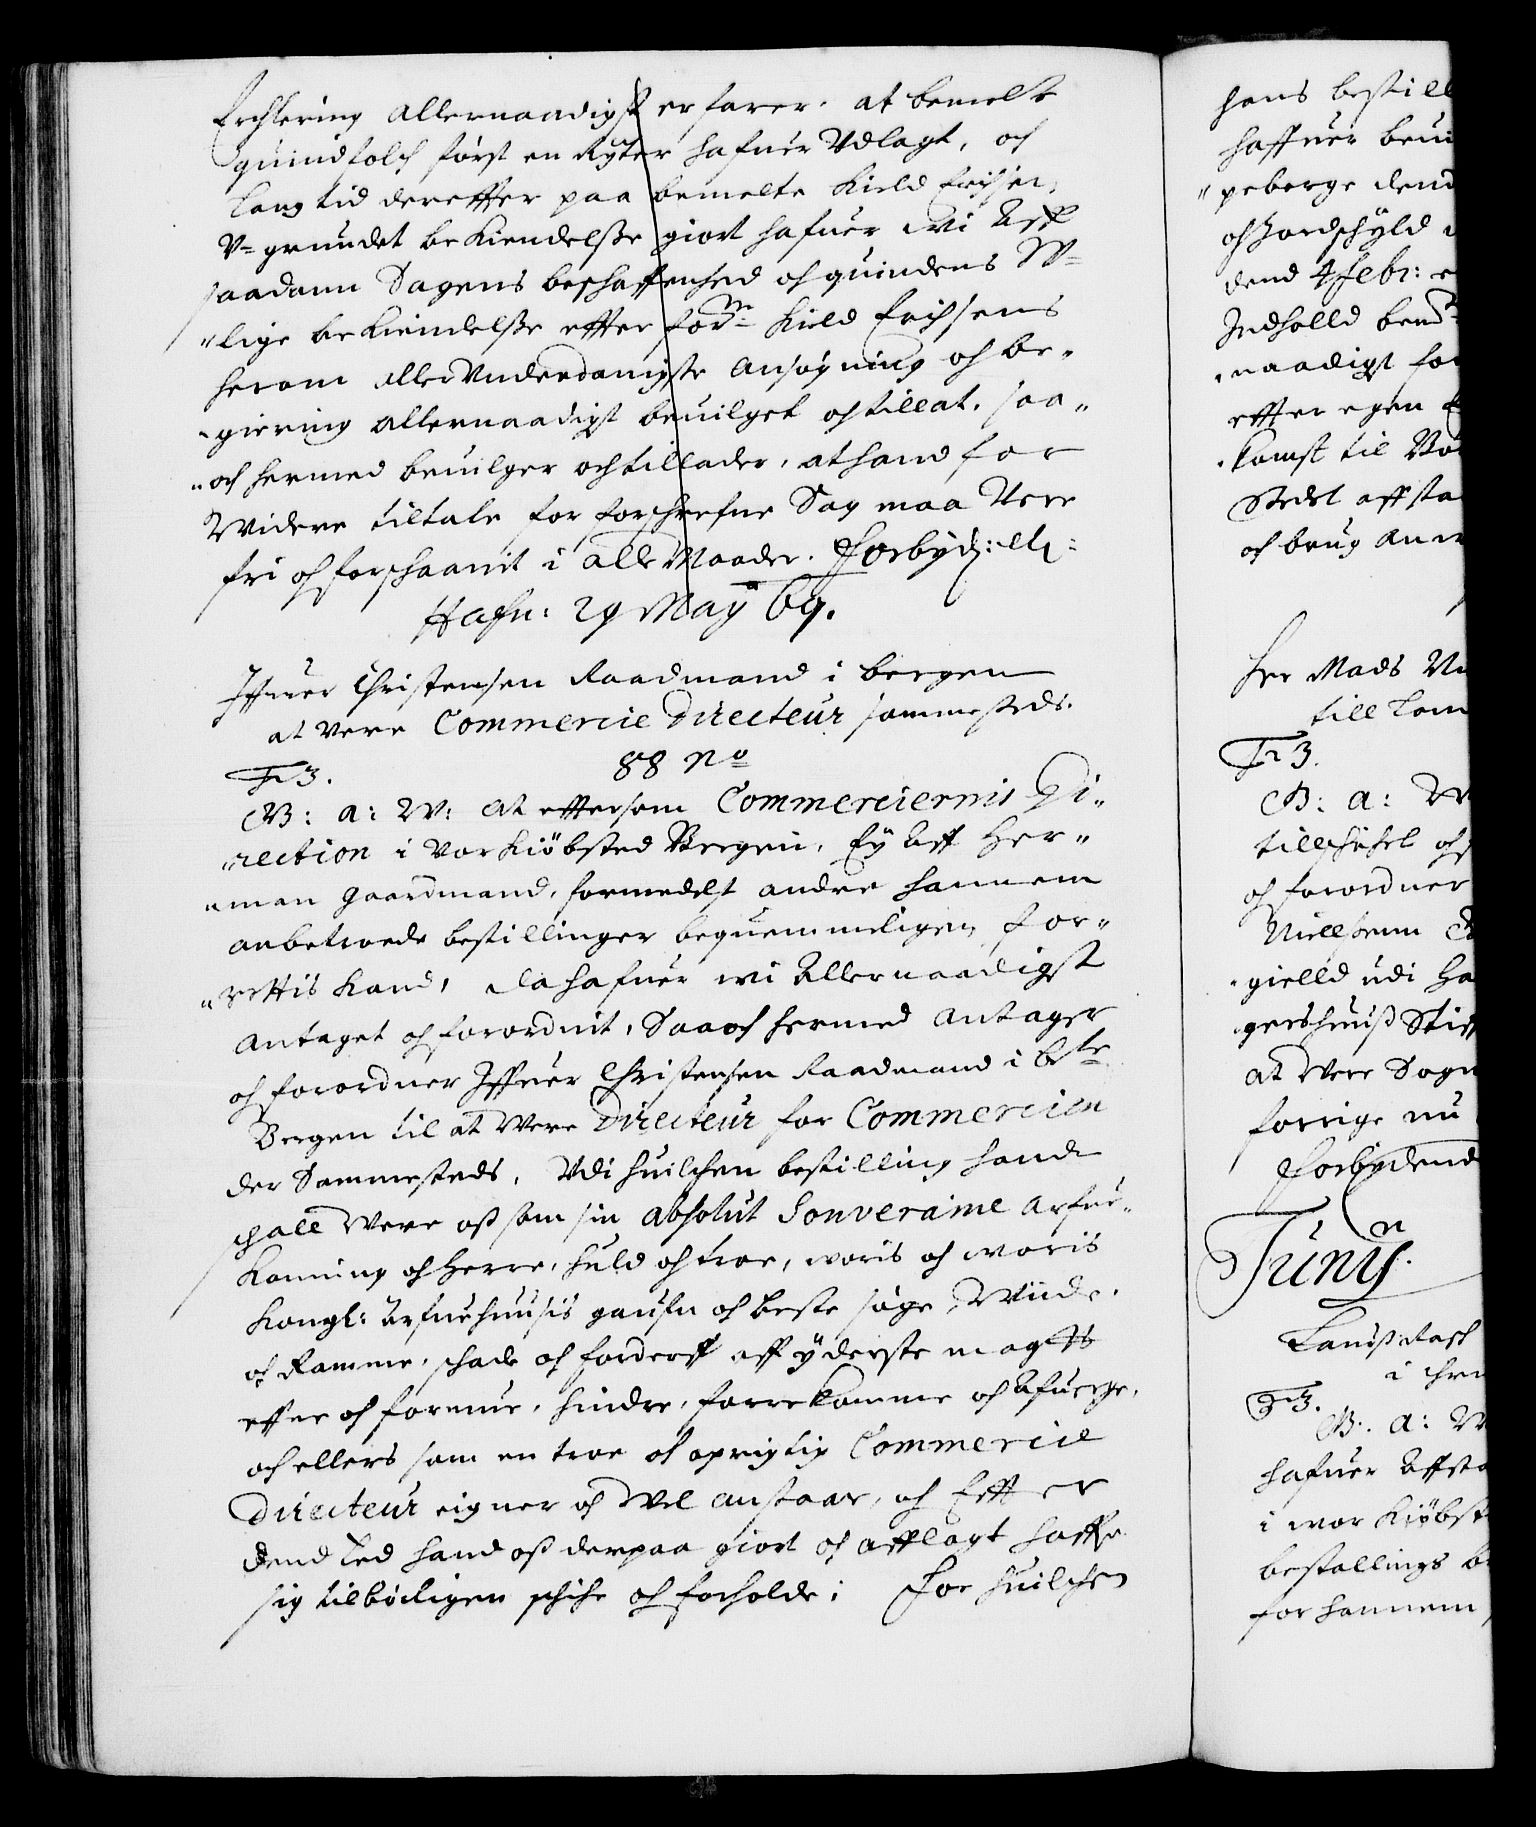 Erchlering allernaadigst erfarer, at bemelte
quindfolch først en Ryter hafuer Udlagt, och
lang tid dereffter paa bemelte Kield Erichsen,
V= grundet bekiendelsse giort hafuer Wi Aff
saadann Sagens beschaffenhed och quindens W=
"lige bekiendelsse effter forne Kield Erichsens
herom allerUnderdanigste ansøgning och be-
"giering allernaadigst beuilget och tillat, saa-
"och hermed beuilger och tillader, at hand for
Widere tiltale for forschrefne Sag maa Vere
fri och forschaanit i alle Maader. Forbyd: etc:
Hafn: 29 May 69.
Iffuer Christensen Raadmand i bergen
at vere Commercie Directeur sammesteds.
F3. 88 No
G: a: W: at efftersom Commerciernis Di-
"rection i vor Kiöbsted Bergen, Ey Aff Her-
"man Gaardmand, formedelst andre hannem
anbetroede bestillinger bequemmeligen for-
"rettis kand, da hafuer wi Allernaadigst
Antaget och forordnit, Saa och hermed Antager
och forordner Iffuer Christensen Raadmand i bte
Bergen til at Vere Directeur for Commercien
der Sammesteds, Udi huilchen bestilling hand
schall Vere oss som sin absolut Souveraine Arfue-
Konning och Herre, huld och troe, woris och woris
Kongl: Arfuehuusis gaufn och beste søge, Wiide
och Ramme, schade och forderff aff yderste magt
effne och formue, hindre, forrekomme och Afuerge,
och ellers som en troe och oprigtig Commercie
Directeur eigner och Vel anstaar, och Effter
dend Eed hand oss derpaa giort och afflagt haffr
sig tilbörligen schiche och forholde; For huilchen
hans bestill
haffuer beui
"peberge dend
och Jordschyld
dend 4 Febr:
Indholld bemt
"naadigst for
effter egen
"komst til Vor
Stedet affsta
och brug an
Her Mads
till Com
F3.
G: a: W
tillschichet och
och forordner
Niellsenn
"gielld udi Ha
gershuuss Stifft
at Vere Sogn
forrige nu
Forbydend
Junij.
Lauss Rasch
i Chri
F3.
G: a: W
hafuer Affsta
i wor Kiöbst
bestallings b
for hannem